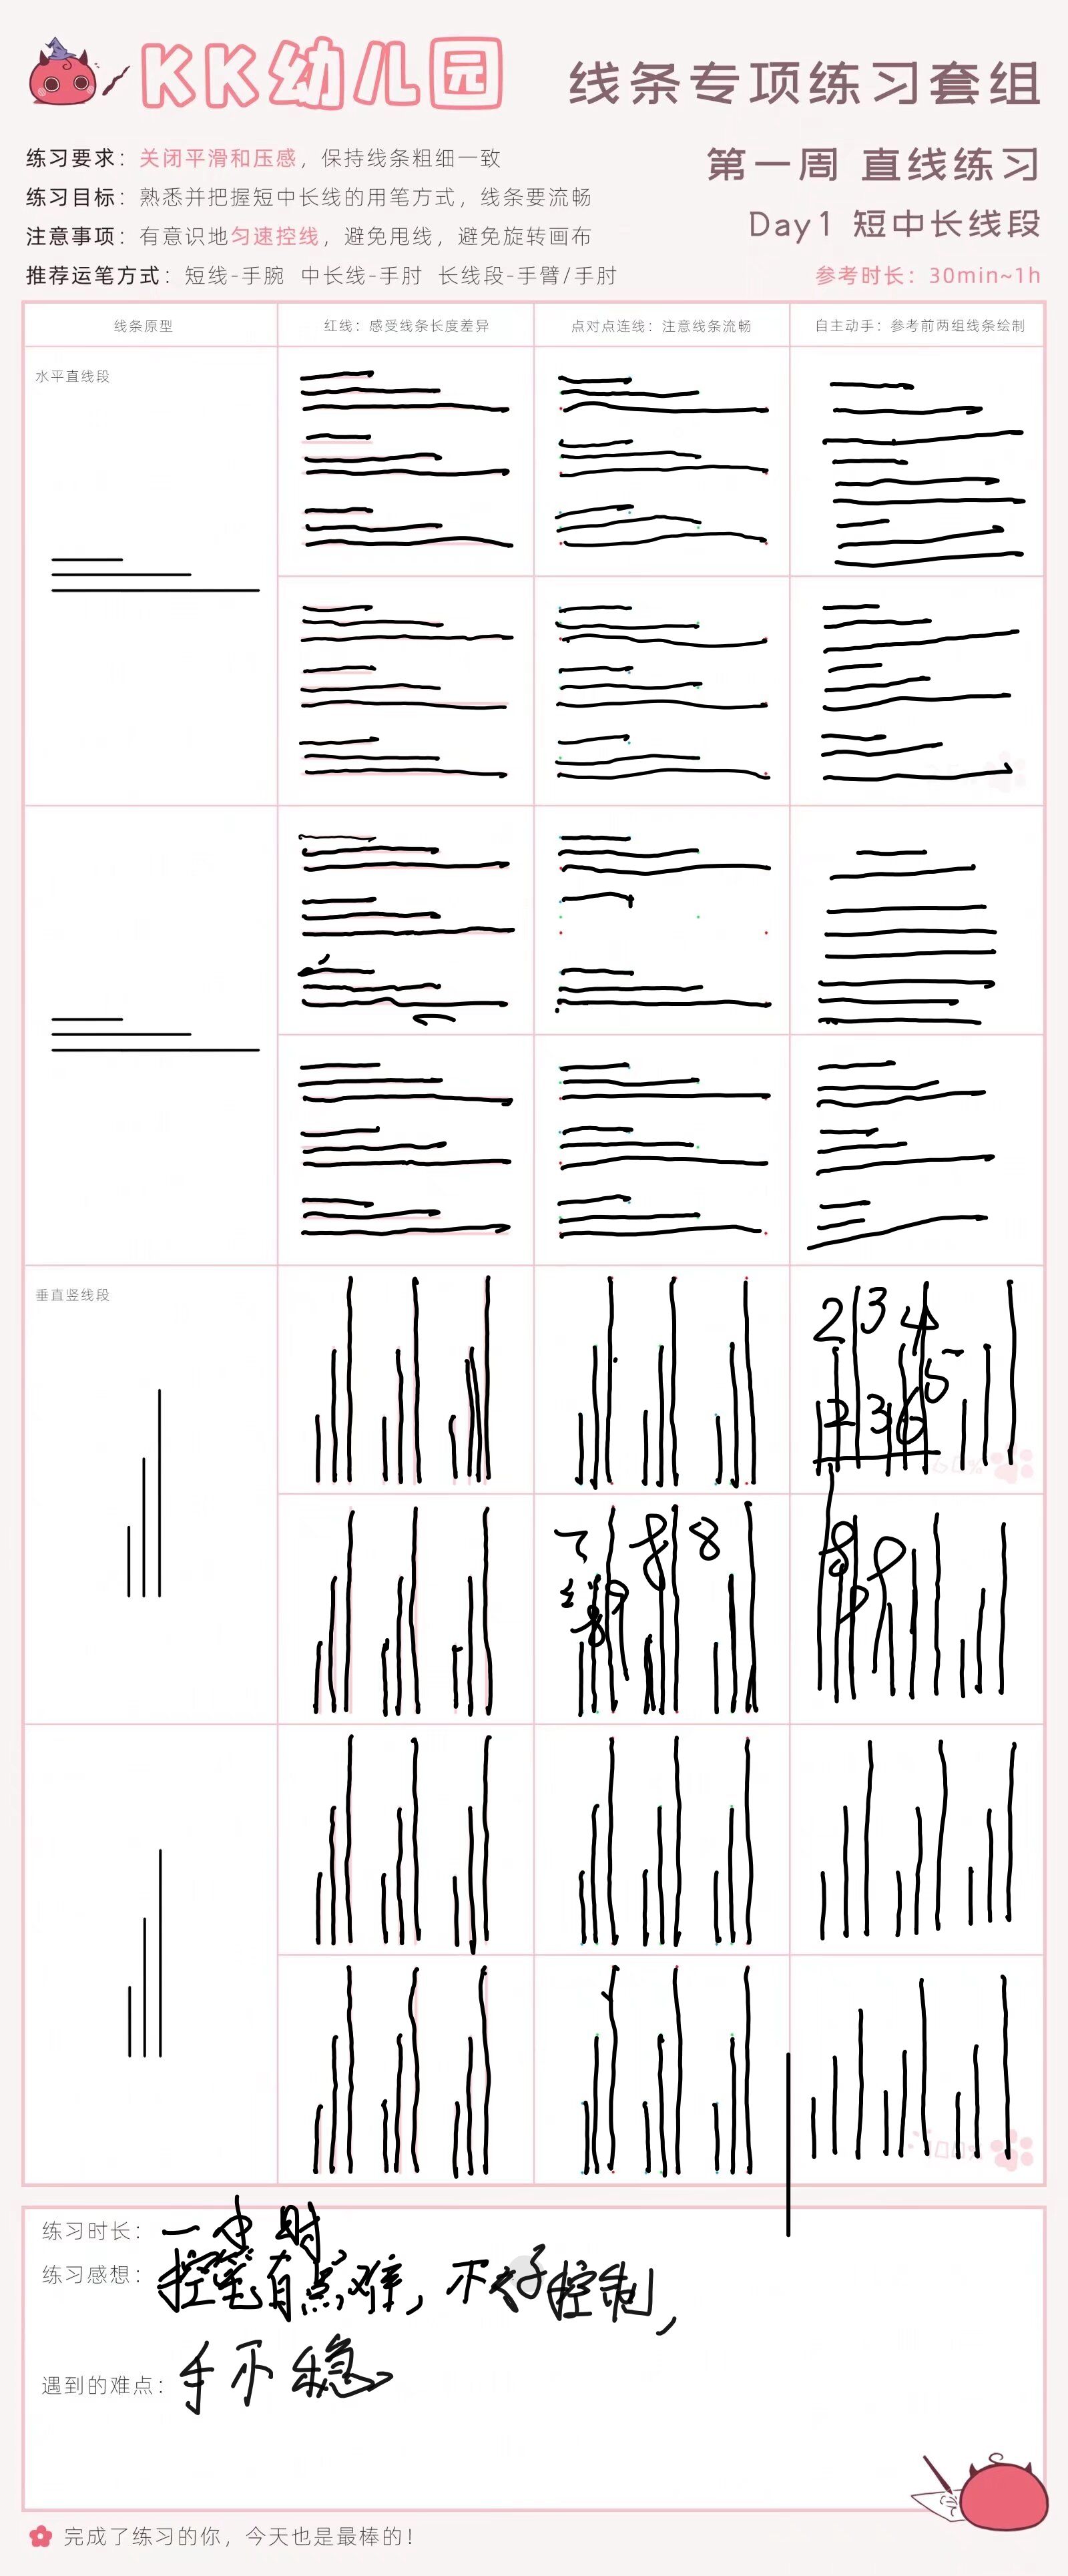 KK幼儿园
线条专项练习套组
练习要求：关闭平滑和压感，保持线条粗细一致
第一周 直线练习
练习目标：熟悉并把握短中长线的用笔方式，线条要流畅
Day1 短中长线段
注意事项：有意识地匀速控线，避免甩线，避免旋转画布
推荐运笔方式：短线-手腕 中长线-手肘 长线段-手臂/手肘
参考时长：30min~1h
线条原型
红线：感受线条长度差异
点对点连线：注意线条流畅
自主动手：参考前两组线条绘制
水平直线段
垂直竖线段
2 3 4
5
2 3 6
8 8
练习时长：一小时
练习感想：控笔有点难，不太好控制，
遇到的难点：手不稳
完成了练习的你，今天也是最棒的！